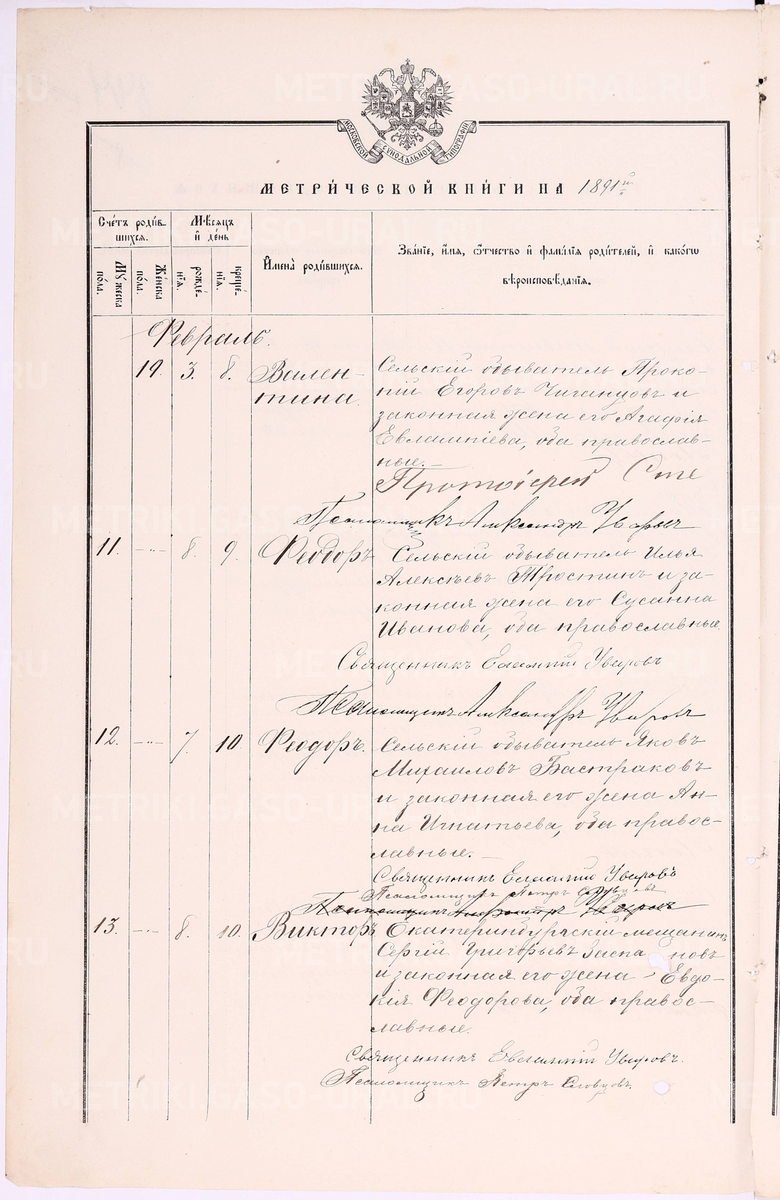 МОСКОВСКОЙ СѴНОДАЛЬНОЙ ТИПОГРАФІИ
МЕТРИ́ЧЕСКОЙ КНИ́ГИ НА 1891й
Сче́тъ роди́в-
шихся.
Мѣ́сяцъ
и҆ де́нь
Мꙋ́жеска
по́ла.
Же́нска
по́ла.
рожде́-
нїѧ.
креще́-
нїѧ.
И҆мена̀ роди́вшихся.
Зва́нїе, и҆́мя, ѻ҆́тчество и҆ фамѝлїѧ роди́телей, и҆ како́гѡ
вѣроисповѣ́данїѧ.
Февраль.
19. 3. 8. Вален-
тина.
Сельскій обыватель Проко-
пій Егоровъ и
законная жена его Агафія
Евлампіева, оба православ-
ные.
Протоіерей
Псаломщикъ Александръ Уваровъ
11. -"- 8. 9. Ѳеодоръ Сельскій обыватель Илья
Алексѣевъ Тростинъ и за-
конная жена его Сусанна
Иванова, оба православные.
Священникъ Евлампій Уваровъ
Псаломщикъ Александръ Уваровъ
12. -"- 7. 10. Ѳеодоръ. Сельскій обыватель Яковъ
Михаиловъ Бастраковъ
и законная его жена Ан-
на Игнатьева, оба правос-
лавные.
Священникъ Евлампій Уваровъ
Псаломщикъ Петръ Словцовъ
Псаломщикъ Александръ Уваровъ
13. -"- 8. 10. Викторъ Екатеринбургскій мещанинъ
Сергій Григорьевъ
и законная его жена Евдо-
кія Ѳеодорова, оба правос-
лавные.
Священникъ Евлампій Уваровъ.
Псаломщикъ Петръ Словцовъ.
METRIKI.GASO-URAL.RU